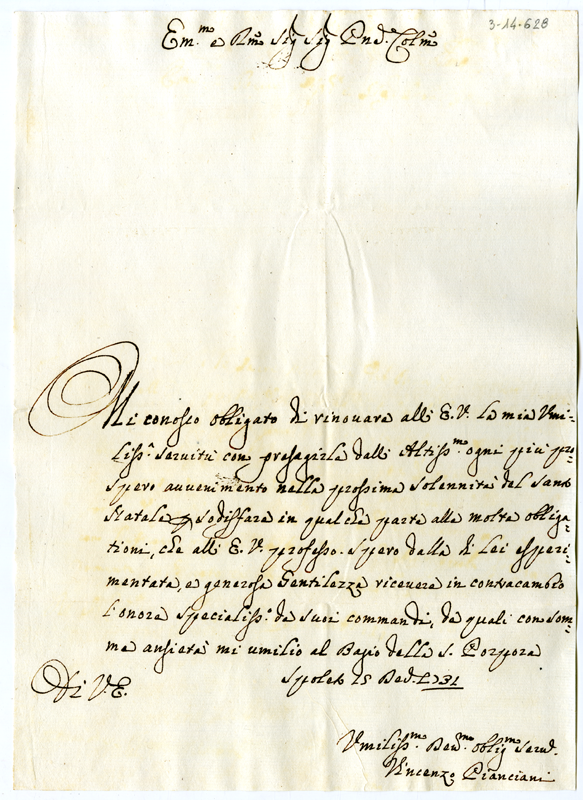 3-14-628
Em.mo e Rmo Sig Sig Pnd. Colmo
Mi conosco obligato di rinovare alli E.V. la mia Vmi-
liss.a servitù con presagirle dall Altiss.mo ogni più pro-
spero avvenimento nella prossima solennità del Santo
Natale p sodisfare in qualche parte alle molte obliga-
tioni, che alli E.V. professo. Spero dalla di Lei esperi-
mentata, e generosa Gentilezza ricevere in contracambio
l'onore specialiss.o de suoi commandi, de quali con som-
ma ansietà mi umilio al Bagio della S. Porpora
Di V.E. Spoleto 15 1731
Vmiliss.mo oblig.mo
Vincenzo Pianciani